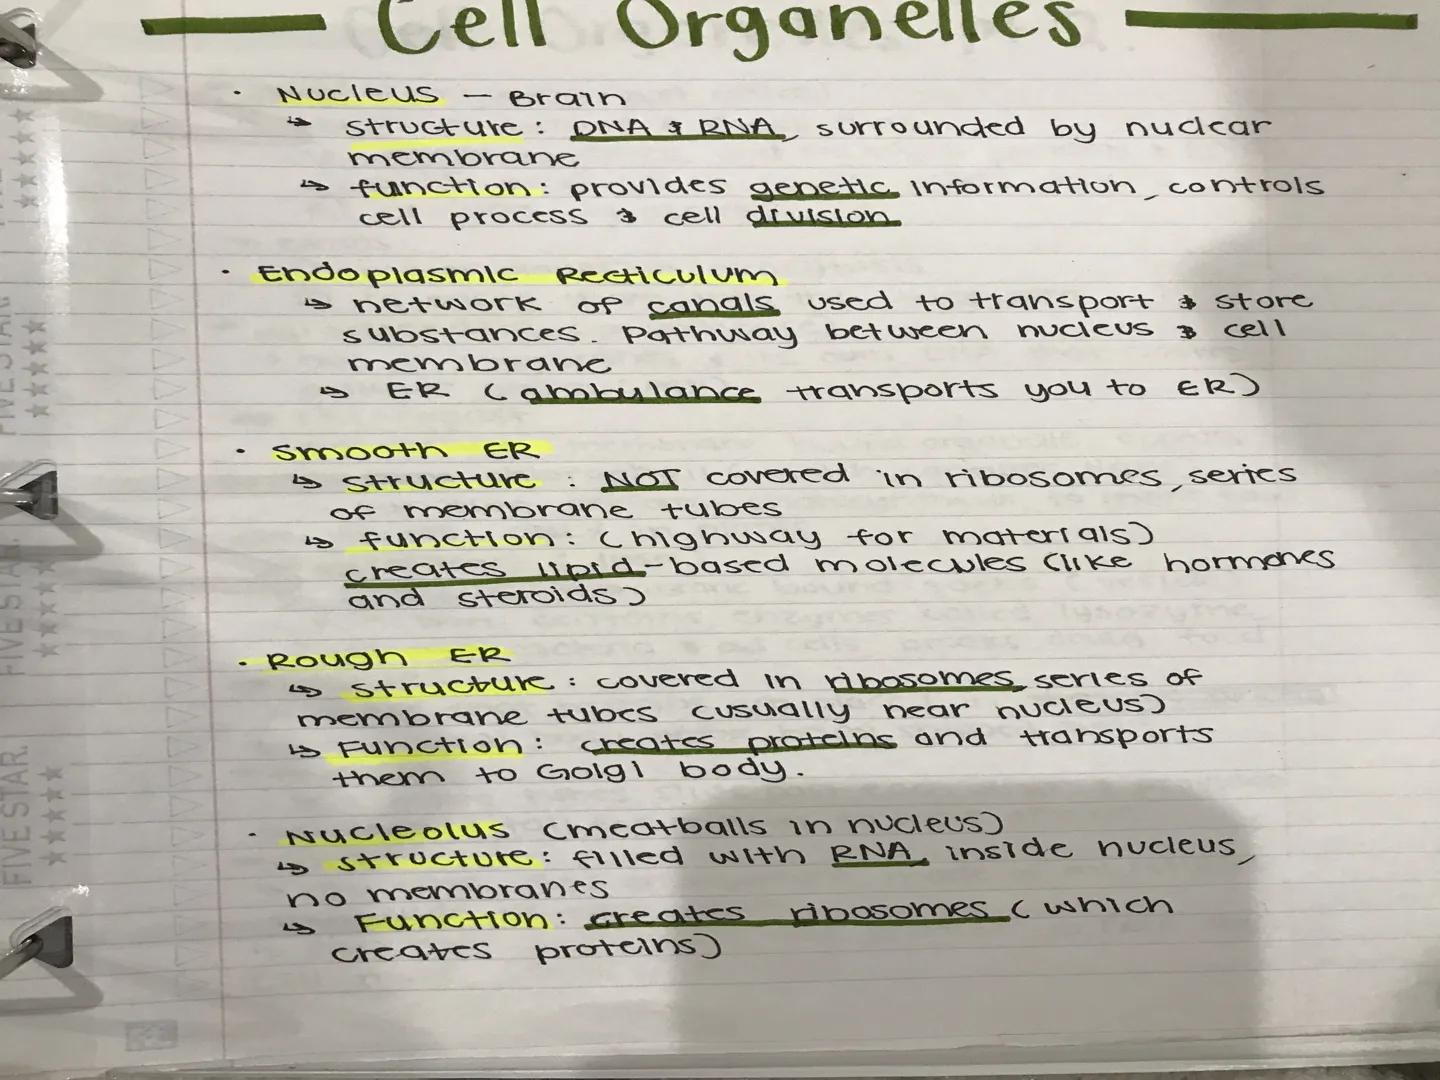 Cell Organelles
· Nucleus - Brain
↳ structure: DNA & RNA, surrounded by nuclear
membrane
↳ function: provides genetic information, controls
cell process & cell division
· Endoplasmic Recticulum
↳ network of canals used to transport & store
substances. Pathway between nucleus & cell
membrane
↳ ER (ambulance transports you to ER)
· Smooth ER
↳ structure: NOT covered in ribosomes, series
of membrane tubes
↳ function: (highway for materials)
creates lipid-based molecules (like hormones
and steroids)
· Rough ER
↳ structure: covered in ribosomes, series of
membrane tubes (usually near nucleus)
↳ Function: creates proteins and transports
them to Golgi body.
· Nucleolus (meatballs in nucleus)
↳ structure: filled with RNA, inside nucleus,
no membranes
↳ Function: creates ribosomes (which
creates proteins)
FIVE STAR
FIVE STAR.
FIVE STAR.